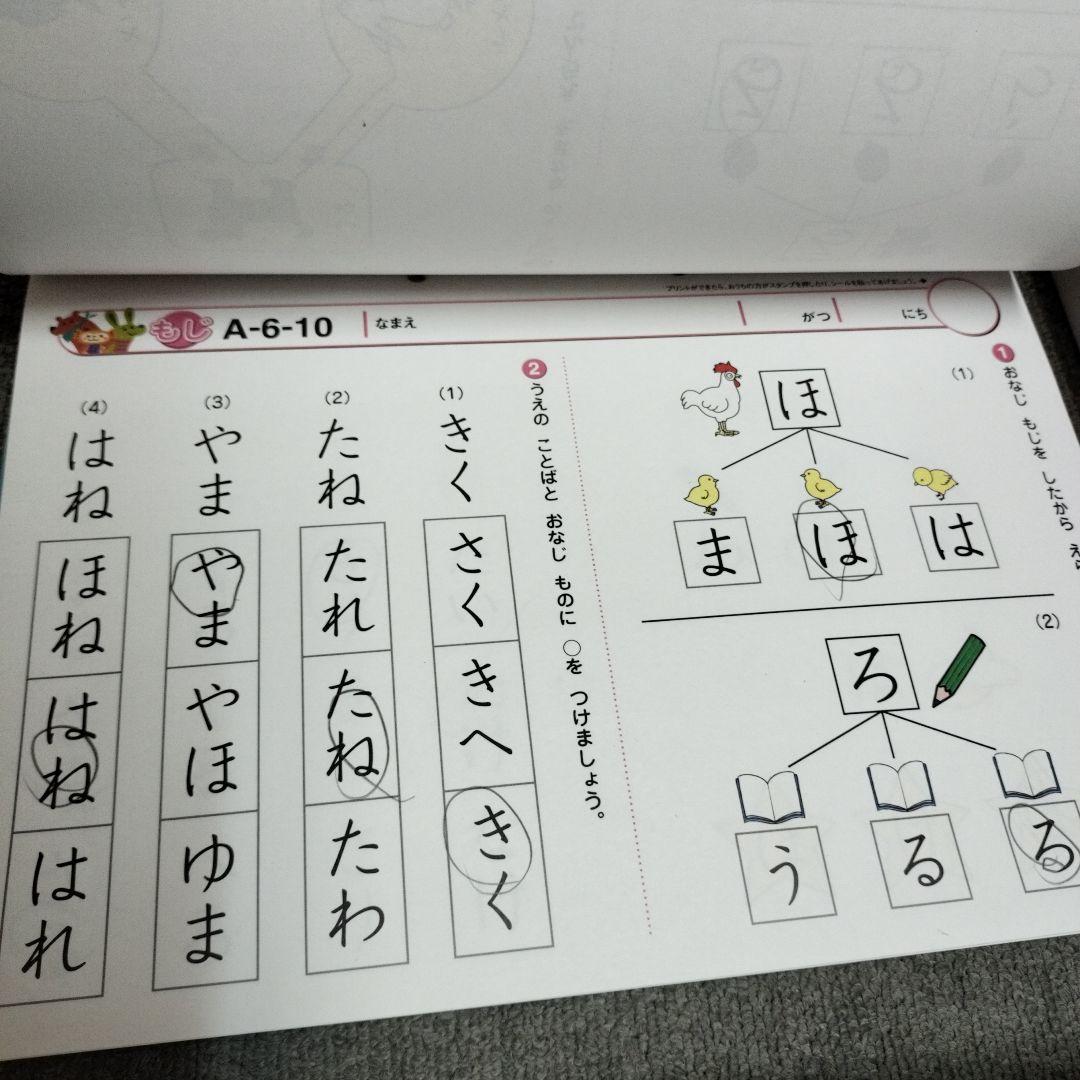 プリントができたら、おうちの方がスタンプを押したり、シールを貼ってあげましょう。
もじ A-6-10 なまえ がつ にち
1 おなじ もじを したから
(1)
ほ
ま ほ は
(2)
ろ
う る ろ
2 うえの ことばと おなじ ものに ○を つけましょう。
(1)
きく
さく
きへ
きく
(2)
たね
たれ
たね
たわ
(3)
やま
やま
やほ
ゆま
(4)
はね
ほね
はね
はれ